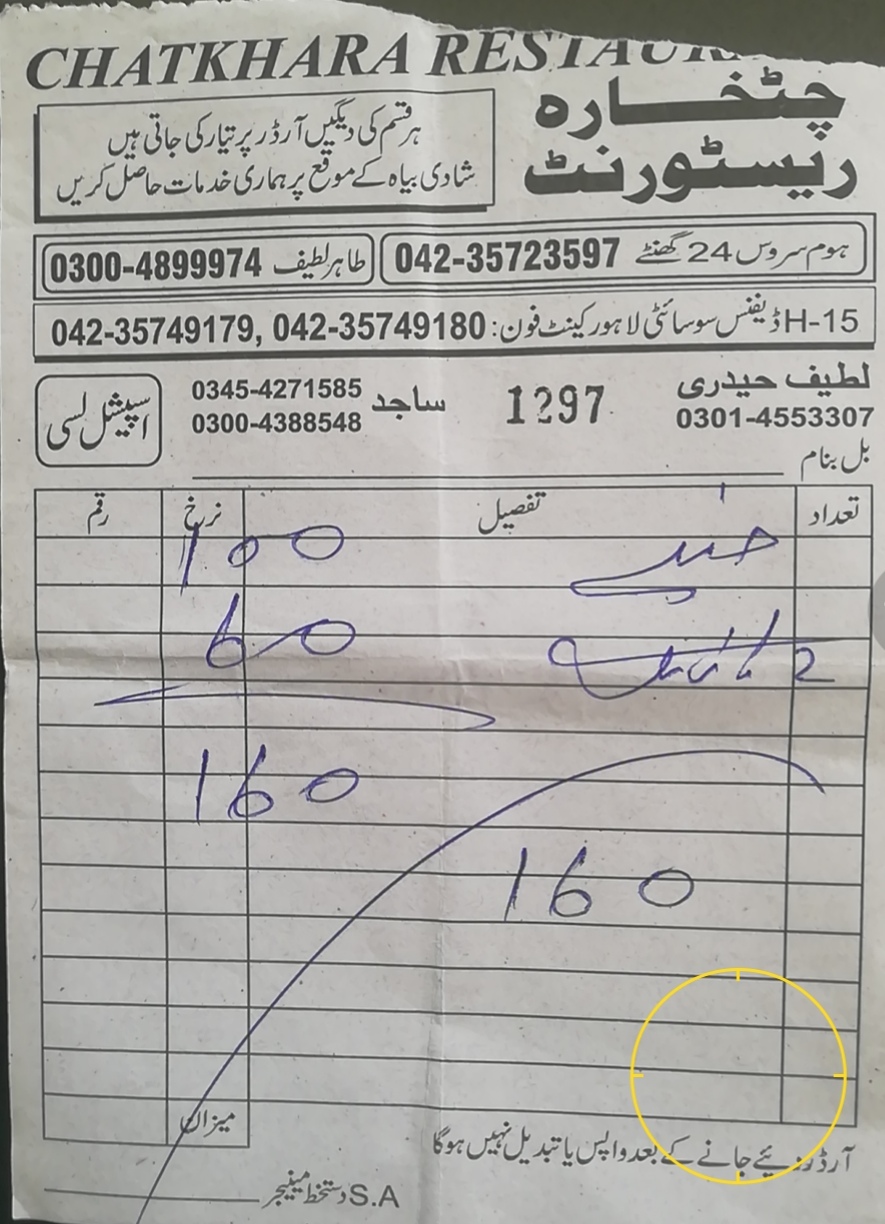 CHATKHARA RESTAUR
چٹخارہ
ریسٹورنٹ
ہر قسم کی دیگیں آرڈر پر تیار کی جاتی ہیں
شادی بیاہ کے موقع پر ہماری خدمات حاصل کریں
ہوم سروس 24 گھنٹے 042-35723597
طاہر لطیف 0300-4899974
H-15 ڈیفنس سوسائٹی لاہور کینٹ فون: 042-35749179, 042-35749180
لطیف حیدری
0301-4553307
1297
ساجد 0345-4271585
0300-4388548
اسپیشل لسی
بل بنام
تعداد تفصیل نرخ رقم
چنے 100
2 60
160
160
میزان
آرڈر دیئے جانے کے بعد واپس یا تبدیل نہیں ہوگا
S.A دستخط مینیجر